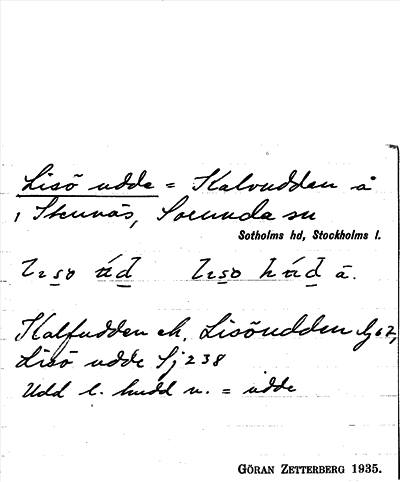 Lisö udde = Kalvudden å
1 Stennäs, Sorunda sn
Sotholms hd, Stockholms l.
Kalfudden ek. Lisöudden
Lisö udde Sj 238
Udd l. hudd n. = udde
GÖRAN ZETTERBERG 1935.